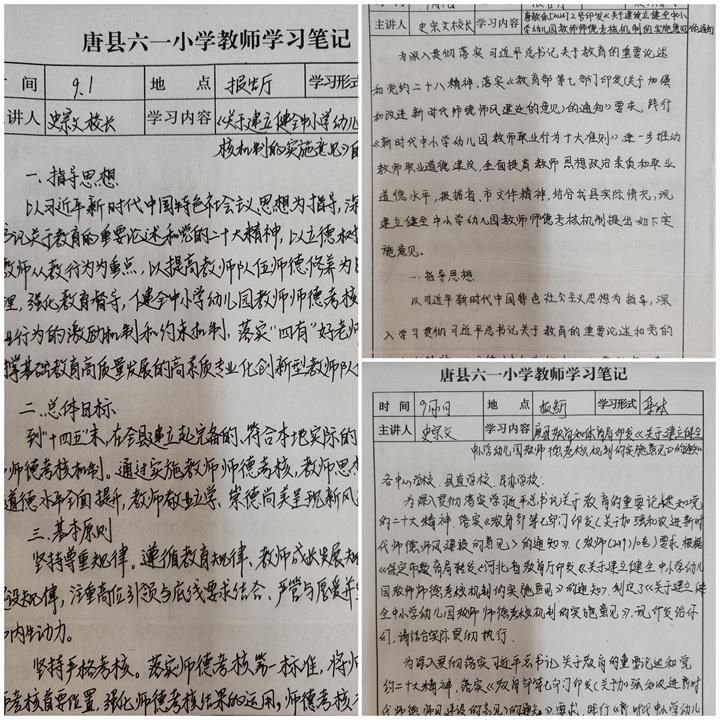 唐县六一小学教师学习笔记
间 9.1 地 点 报告厅 学习形式
讲人 史宗文校长 学习内容 《关于建立健全中小学幼儿
核机制的实施意见》的
一、指导思想
以习近平新时代中国特色社会主义思想为指导,深
书记关于教育的重要论述和党的二十大精神,以立德树
教师从教行为为重点,以提高教师队伍师德修养为目
理,强化教育督导,健全中小学幼儿园教师师德考核
业行为的激励机制和约束机制,落实“四有”好老师
撑基础教育高质量发展的高素质专业化创新型教师队
二、总体目标
到“十四五”末,在全县建立起完备的、符合本地实际的
师德考核机制。通过实施教师师德考核,教师思
道德水平全面提升,教师敬业立学、崇德尚美呈现新风
三、基本原则
坚持尊重规律。遵循教育规律、教师成长发展规
设规律,注重高位引领与底线要求结合、严管与厚爱并
内生动力。
坚持严格考核。落实师德考核第一标准,将师
考核首要位置,强化师德考核结果的运用,师德考核
主讲人 史宗文校长 学习内容 唐教体[2024]2号印发《关于建立健全中小
学幼儿园教师师德考核机制的实施意见》的通知
为深入贯彻落实习近平总书记关于教育的重要论述
和党的二十八精神,落实《教育部第七部门印发《关于加强
和改进新时代师德师风建设的意见》的通知》要求,践行
《新时代中小学幼儿园教师职业行为十大准则》进一步推动
教师职业道德建设,全面提高教师思想政治素质和职业
道德水平,根据省、市文件精神,结合我县实际情况,现
建立健全中小学幼儿园教师师德考核机制提出如下实
施意见。
一、指导思想
以习近平新时代中国特色社会主义思想为指导,深
入学习贯彻习近平总书记关于教育的重要论述和党的
唐县六一小学教师学习笔记
时 间 9月1日 地 点 报告厅 学习形式 集体
主讲人 史宗文 学习内容 唐县教育和体育局印发《关于建立健全
中小学幼儿园教师师德考核机制的实施意见》的通知
各中心学校、县直学校、民办学校:
为深入贯彻落实学习近平总书记关于教育的重要论述和党
的二十大精神,落实《教育部第七部门印发《关于加强和改进新时
代师德师风建设的意见》的通知》(教师(2019)10号)要求,根据
《保定市教育局转发《河北省教育厅印发《关于建立健全中小学幼儿
园教师师德考核机制的实施意见》的通知》,制定了《关于建立健
全中小学幼儿园教师师德考核机制的实施意见》,现印发给你
们,请结合实际贯彻执行。
为深入贯彻落实习近平总书记关于教育的重要论述和党
的二十大精神,落实《教育部第七部门印发《关于加强和改进新时
代师德师风建设的意见》的通知》要求,践行《新时代中小学幼儿